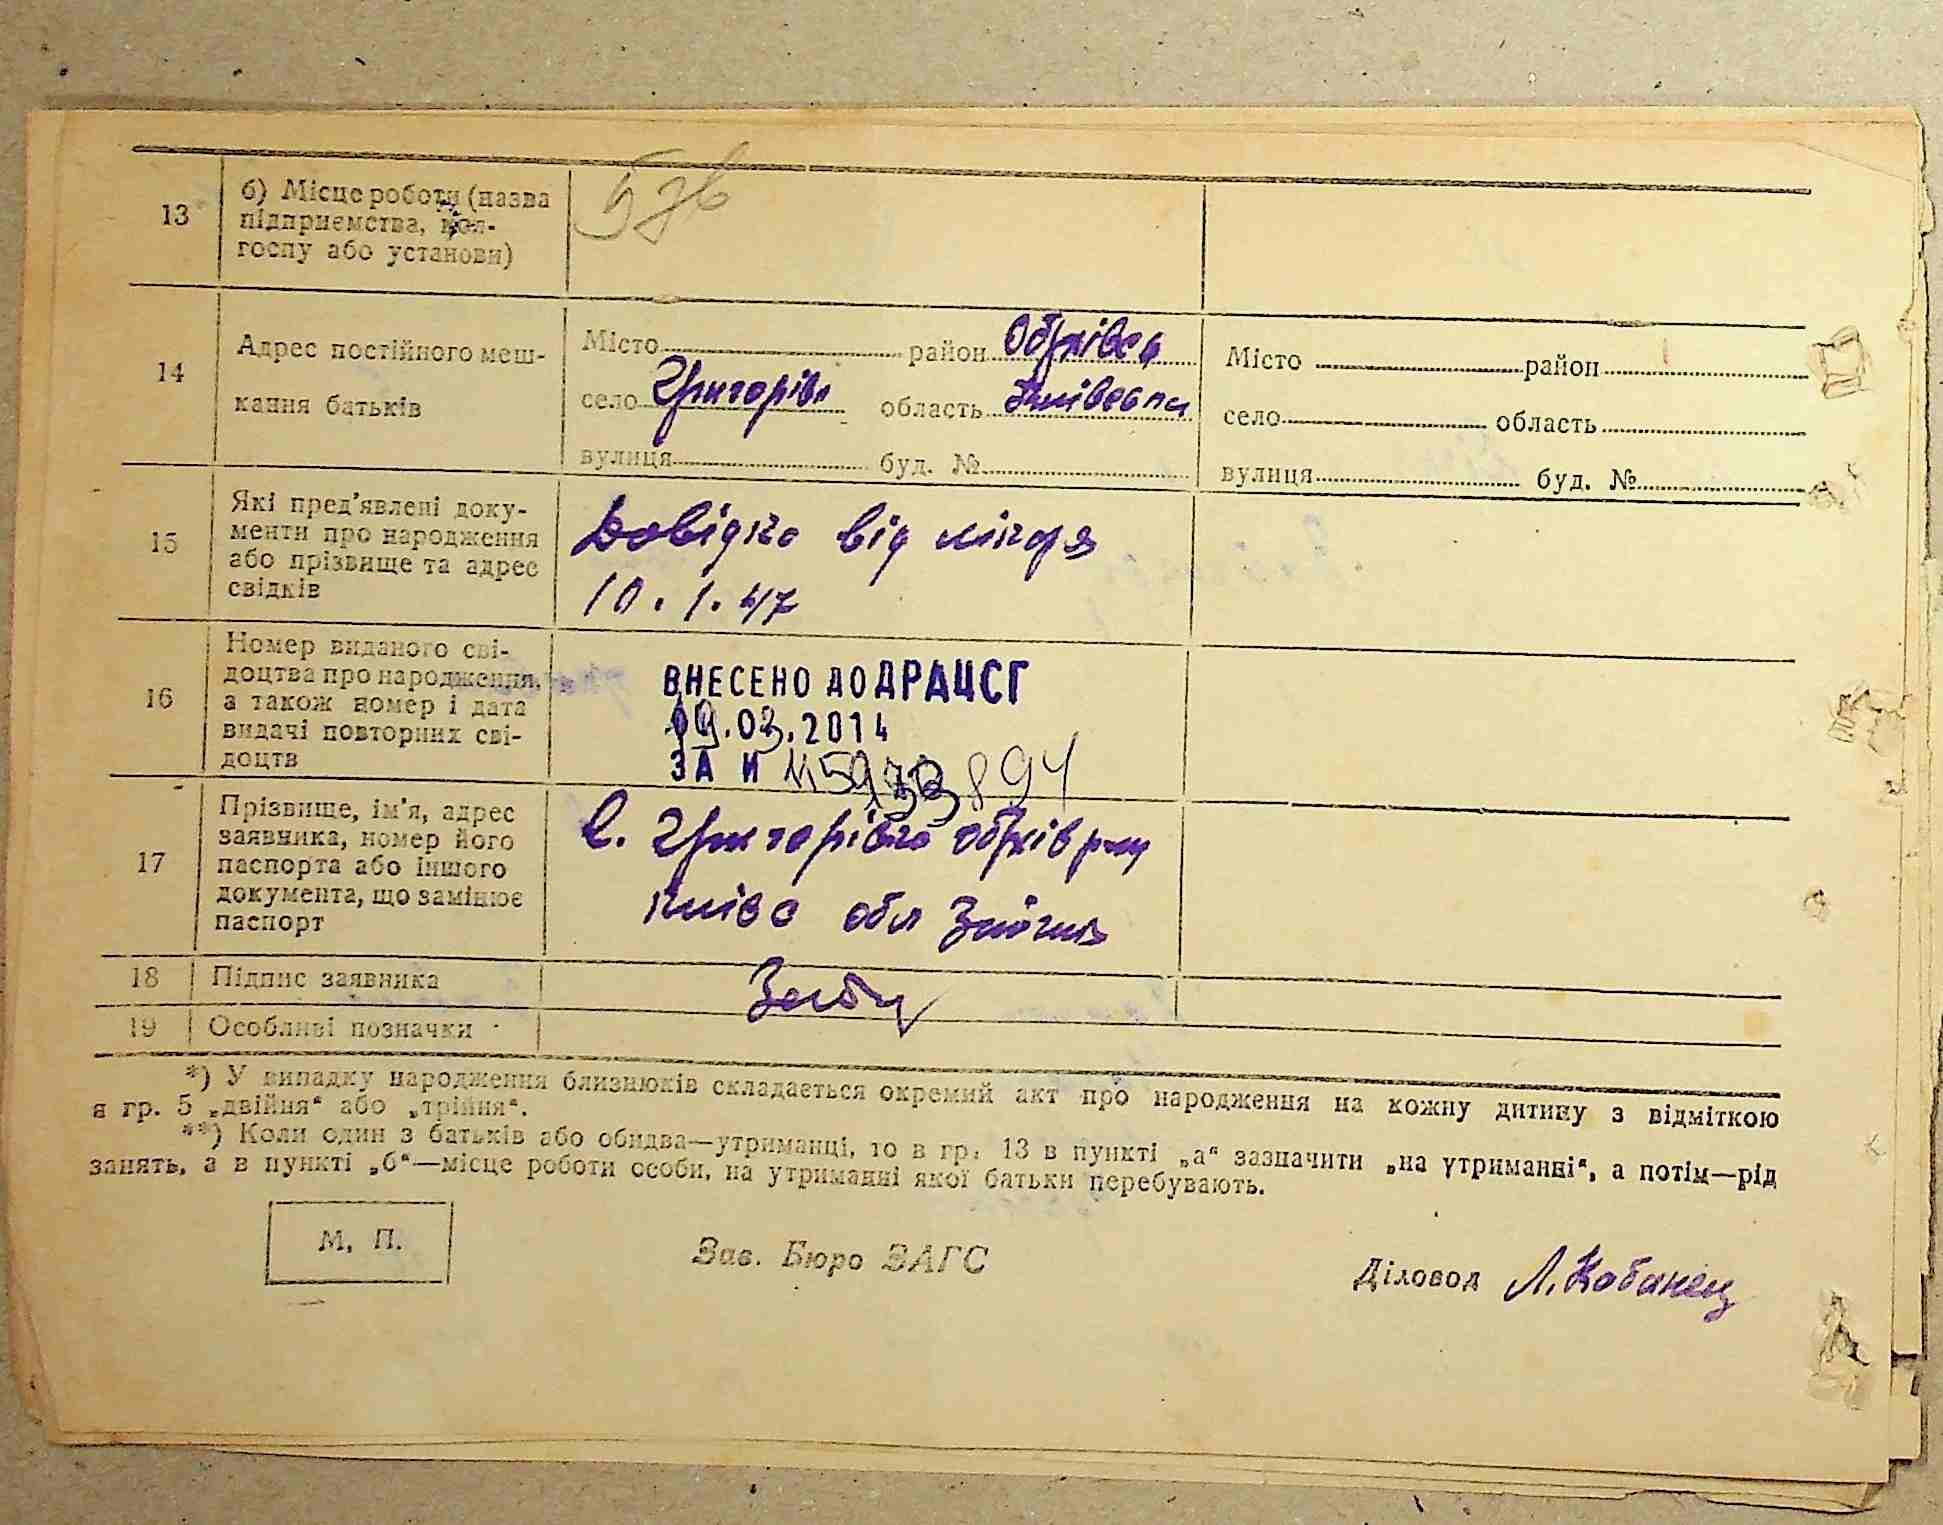 13
б) Місце роботи (назва
підприємства, кол-
госпу або установи)
14
Адрес постійного меш-
кання батьків
Місто район Обухівсь
село Григорівк область Київська
вулиця буд. №
Місто район
село область
вулиця буд. №
15
Які пред'явлені доку-
менти про народження
або прізвище та адрес
свідків
Довідка від лікаря
10. 1. 47
16
Номер виданого сві-
доцтва про народження,
а також номер і дата
видачі повторних сві-
доцтв
ВНЕСЕНО ДО ДРАЦСГ
.03.2014
ЗА И
17
Прізвище, ім'я, адрес
заявника, номер його
паспорта або іншого
документа, що замінює
паспорт
С. Григорівка Обухів р-ну
Київс обл
18
Підпис заявника
19
Особливі позначки
*) У випадку народження близнюків складається окремий акт про народження на кожну дитину з відміткою
в гр. 5 „двійня“ або „трійня“.
**) Коли один з батьків або обидва—утриманці, то в гр. 13 в пункті „а“ зазначити „на утриманні“, а потім—рід
занять, а в пункті „б“—місце роботи особи, на утриманні якої батьки перебувають.
М. П.
Зав. Бюро ЗАГС
Діловод Л. Кабанец